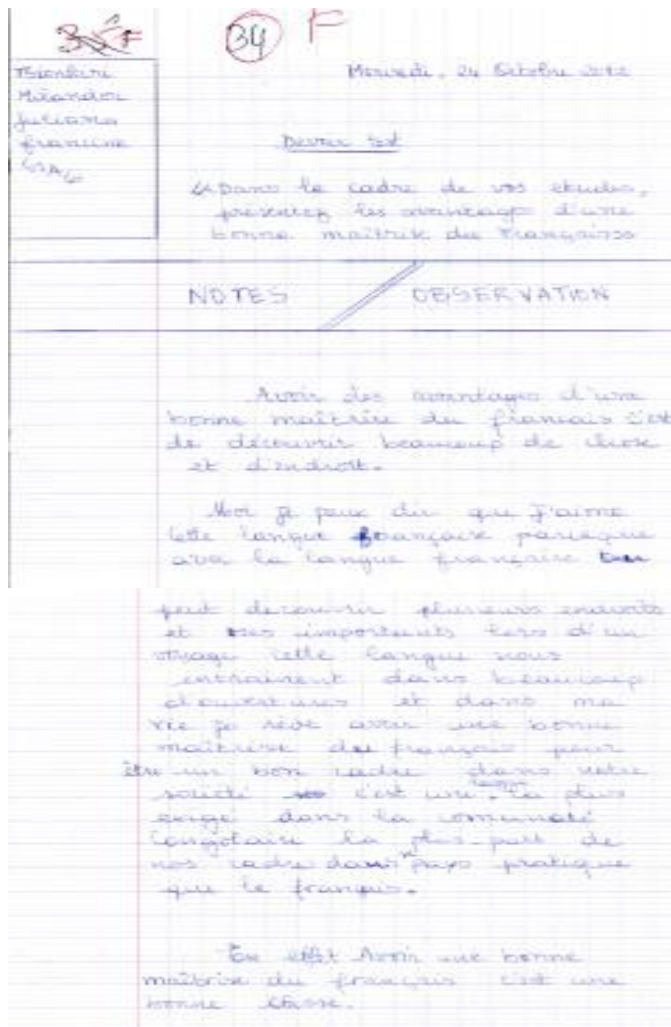 34 F
Mercredi, 24 Octobre 2012
Juliana
Francine
Devoir
"Dans le cadre de vos études,
présentez les avantages d'une
bonne maîtrise du Français"
NOTES OBSERVATION
Avoir des avantages d'une
bonne maîtrise du francais c'est
de découvrir beaucoup de chose
et d'endroit.
Moi je peux dir que j'aime
cette langue française parceque
avec la langue française tu
peut decouvrir plusieurs endroits
et très importants lors d'un
voyage cette langue nous
entrainent dans beaucoup
d'ouvertures et dans ma
vie je rêve avoir une bonne
maîtrise du français pour
être un bon cadre dans notre
société c'est une la plus
exigé dans la comunauté
Congolaise la plus-part de
nos cadre dans pays pratique
que le français.
En effet Avoir une bonne
maîtrise du français c'est une
bonne chose.